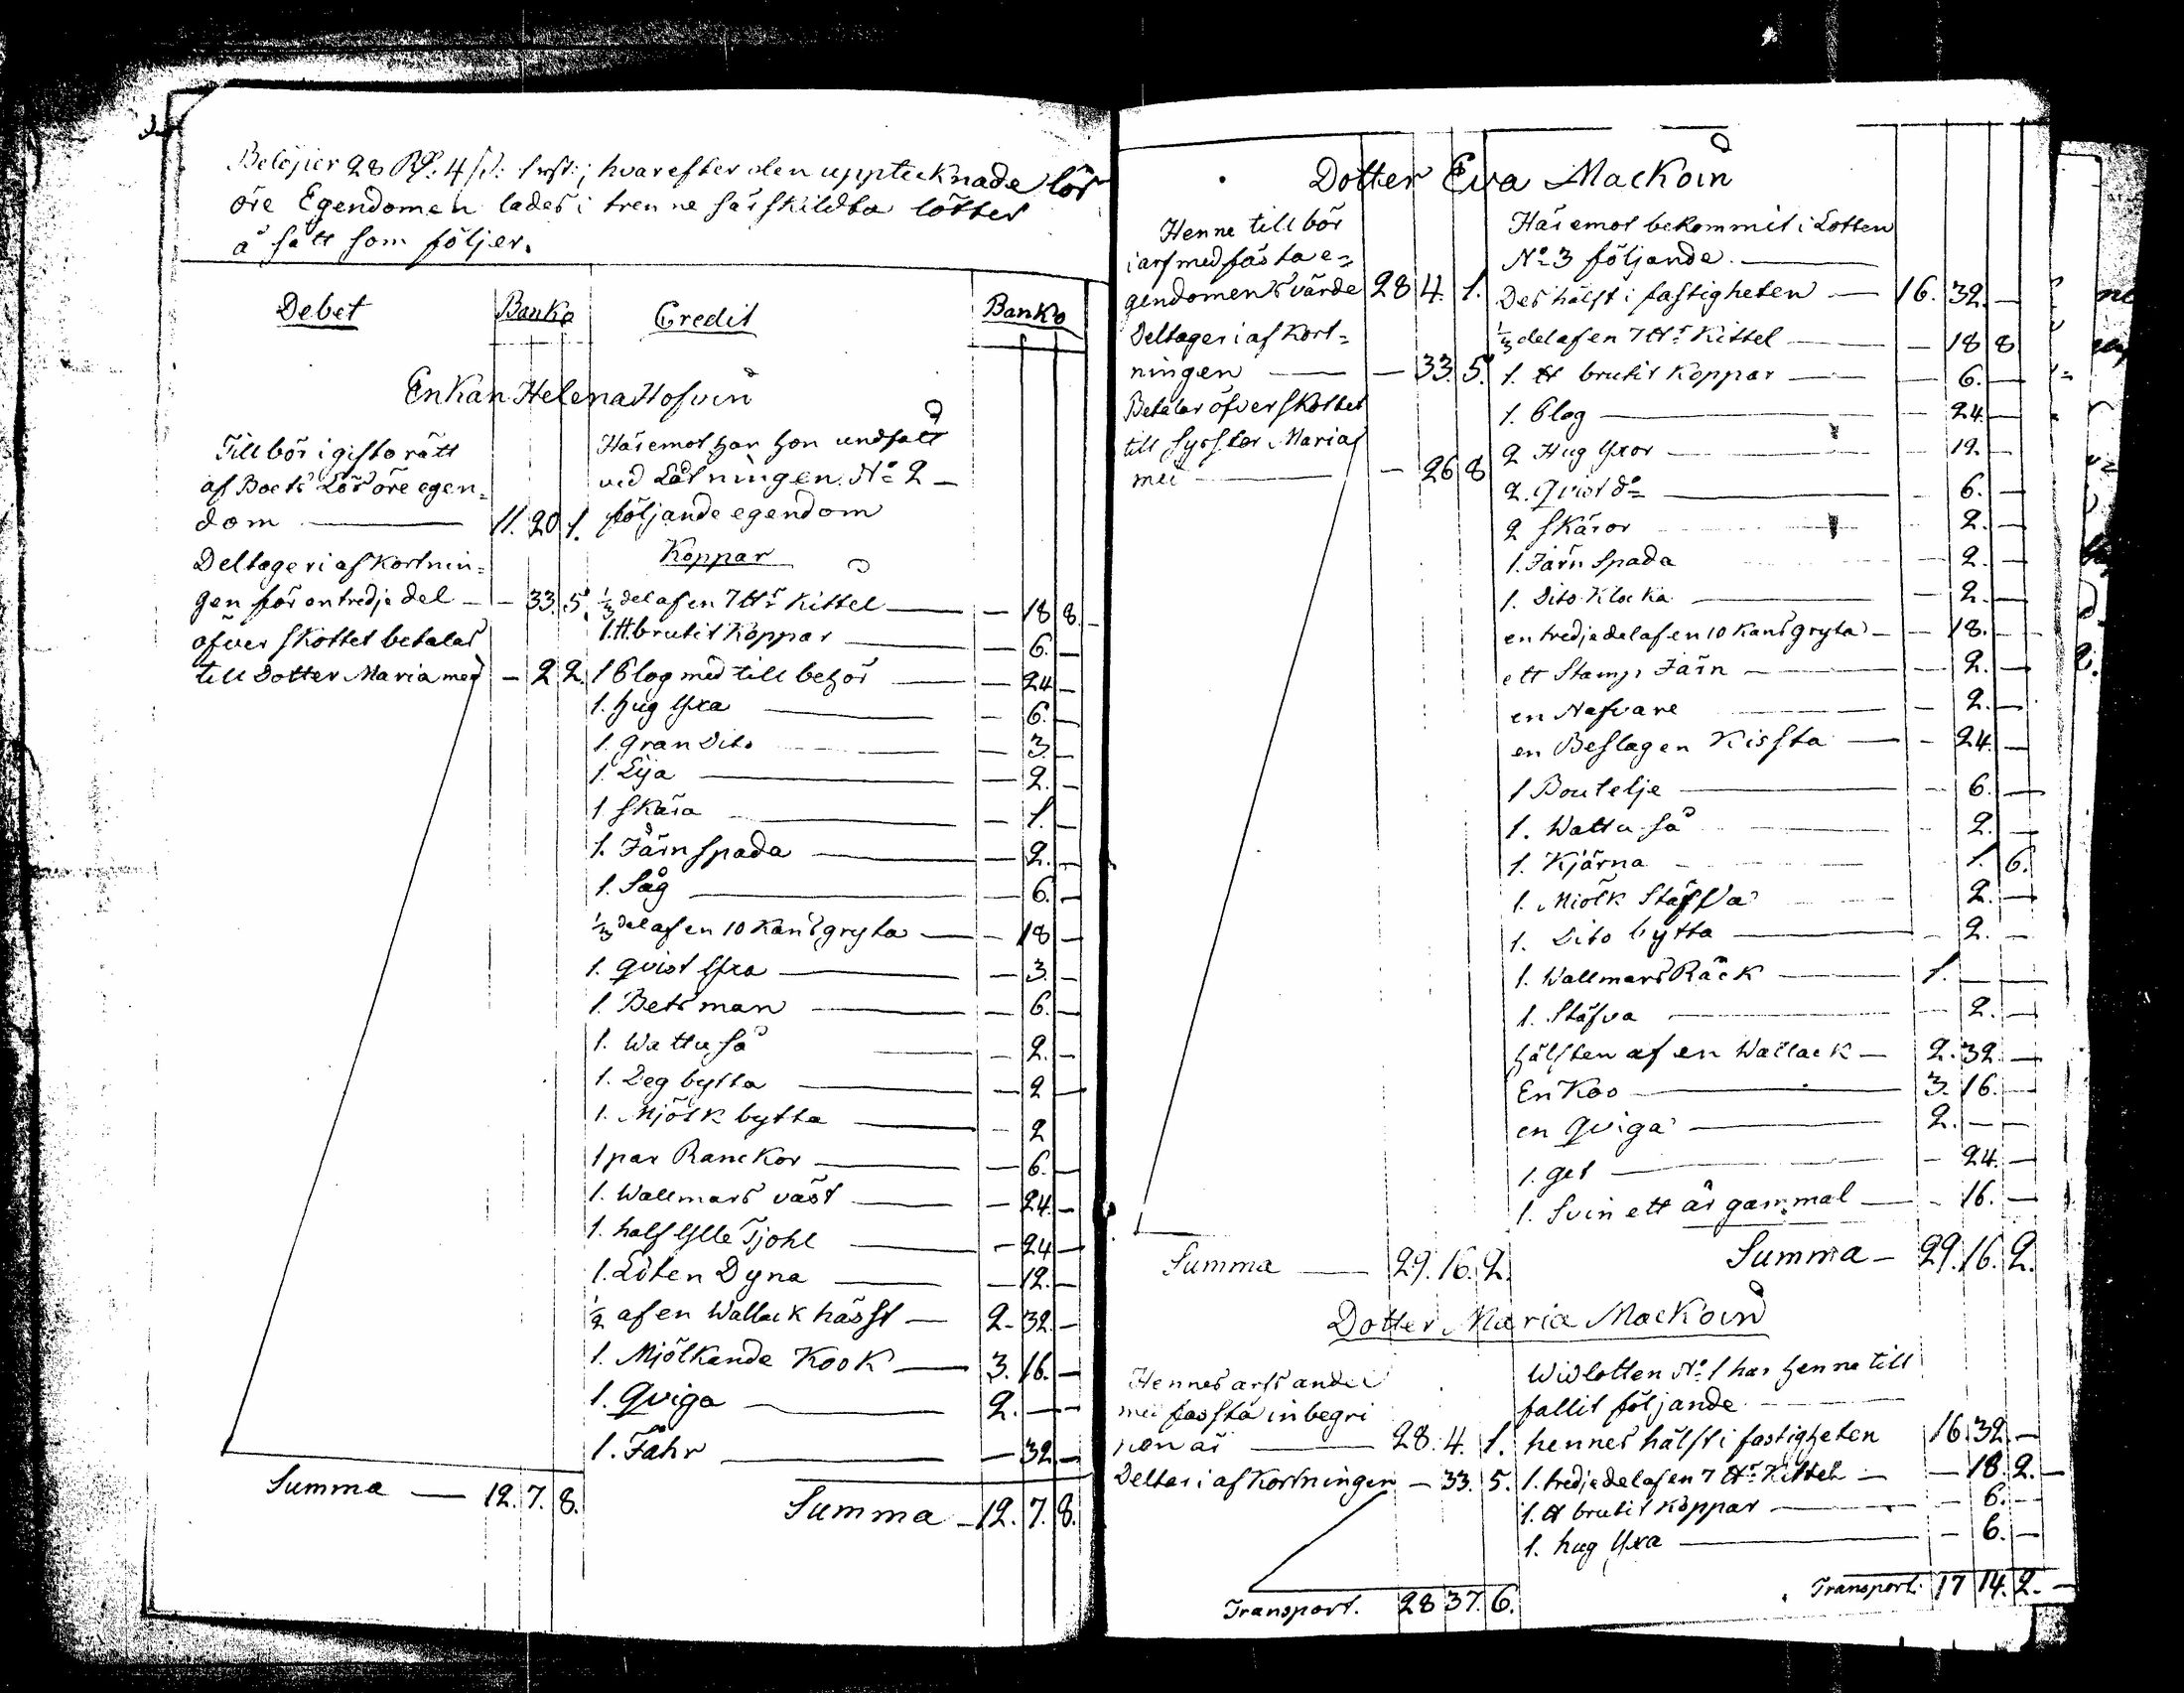 Belöper 28 Rd. 4 s: 1 rst: hvarefter den upptecknade lös
öre Egendomen lades i trenne särskildta lötter
å sätt som följer.
Debet Banko Credit Banko
Enkan Helena Hofvin
Till bör i gifto rätt
af Boets Lösöre egen=
dom 11. 20. 1.
Deltager i afkortnin=
gen för en tredje del — 33. 5.
öfver skottet betalas
till Dotter Maria med — 2 2.
Summa — 12. 7. 8.
Häremot har hon undfått
vid Lotningen N:o 2 —
följande egendom
Koppar
1/3 del af en 7 ttr Kittel — 18 8.
1. tt. brutit Koppar — 6. —
1 Plog med till behör — 24 —
1. hug Yxa — 6. —
1. gran Dito — 3. —
1. Lija — 2. —
1 Skära — 1. —
1. Järn spada — 2. —
1. Såg — 6. —
1/3 del af en 10 Kan's gryta — 18 —
1. qvist Yxa — 3. —
1. Betsman — 6. —
1. Wattu så — 2. —
1. Deg bytta — 2 —
1. Mjölk bytta — 2
1 par Ranckor — 6. —
1. Wallmars väst — 24. —
1. half Ylle Tjohl — 24 —
1. Löten Dyna — 12. —
1/2 af en Wallack häst — 2. 32. —
1. Mjölkande Koo — 3. 16. —
1. Qviga — 2. — —
1. Fåhr — 32 —
Summa — 12. 7. 8.
Dotter Eva Mackoin
Henne till bör
i arf med fasta e=
gendomens värde 28 4. 1.
Deltager i af kort=
ningen — 33. 5.
Betalar öfver skottet
till Syster Maria
med — 26 8
Summa — 29. 16. 2.
Häremot bekommit i Lotten
N:o 3 följande. —
Des hälft i fastigheten — 16. 32. —
1/3 del af en 7 ttr Kittel — 18 8
1. tt brutit Koppar — 6. —
1. Plog — 24 —
2 Hug Yxor — 12. —
2. Qvist d:o — 6. —
2 Skäror — 2. —
1. Järn Spada — 2. —
1. Dito Klocka — 2. —
en tredjedel af en 10 Kan's gryta — 18. —
ett Stamp Järn — 2. —
en Nafvare — 2. —
en Beslagen Kissta — 24. —
1 Boutelje — 6. —
1. Wattu så — 2. —
1. Kjärna — 1. 6.
1. Miölk Stäfva — 2. —
1. Dito bytta — 2. —
1. Wallmars Räck — 1. — —
1. Stäfva — 2. —
hälften af en Wallack — 2. 32. —
En Koo — 3. 16. —
en Qviga — 2. — —
1. get — 24. —
1. Svin ett år gammal — 16. —
Summa — 29. 16. 2.
Dotter Maria Mackoin
Hennes arfs andel
med fassta inbegri
pen är — 28. 4. 1.
Deltar i afkortningen — 33. 5.
Transport. 28 37. 6.
Wid lotten N:o 1 har henne till
fallit följande —
hennes hälft i fastigheten 16 32. —
1. tredjedel af en 7 ttr Kittel — 18. 2. —
1. tt brutit Koppar — 6. —
1. hug Yxa — 6. —
Transport. 17 14. 2. —